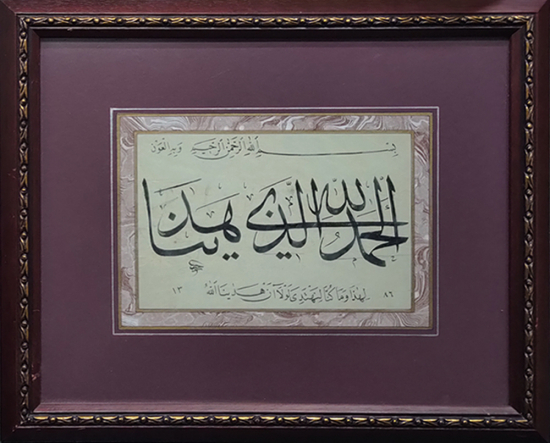 بسم الله الرحمن الرحيم وبه العون
الحمد لله الذي هدينا
لهذا وما كنا لنهتدي لولا أن هدينا الله
١٣ ٨٦